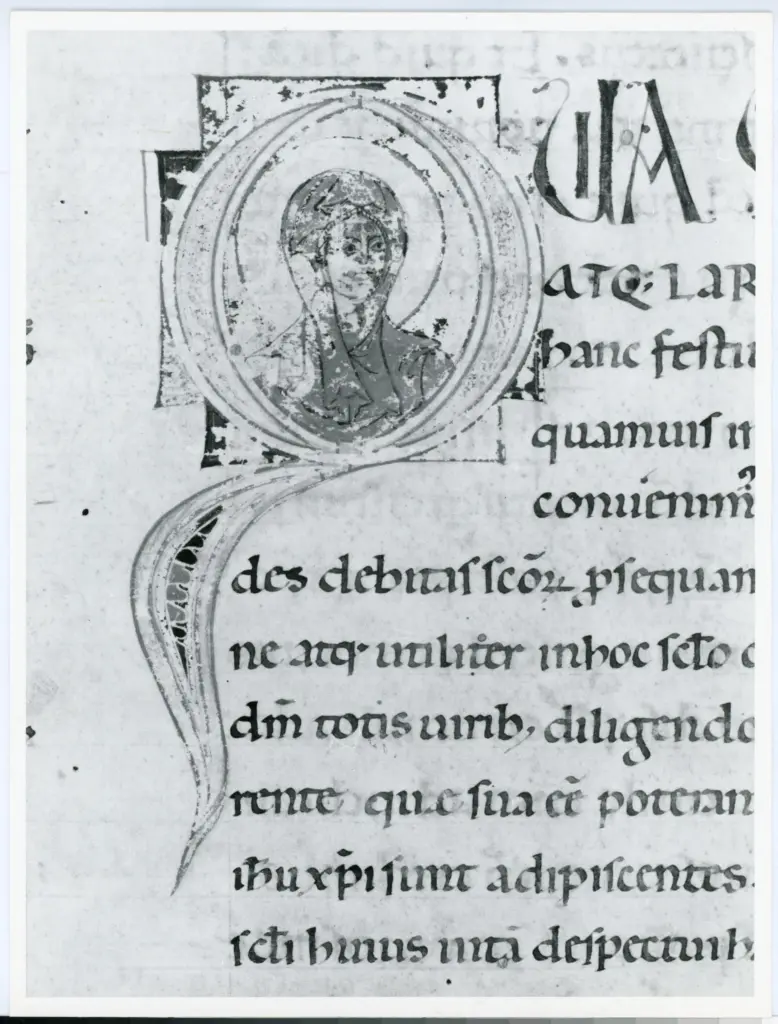 QUA
ATQ; LAR
hanc festiu
quamuis in
conuenim̄
des debitas scōꝝ ꝑsequan
ne atq; utiliter in hoc sclo
dm̄ totis uirib; diligendo
rente que sua eē poteran
ihu xp̄i sunt adipiscentes.
scli huius uita despectui h